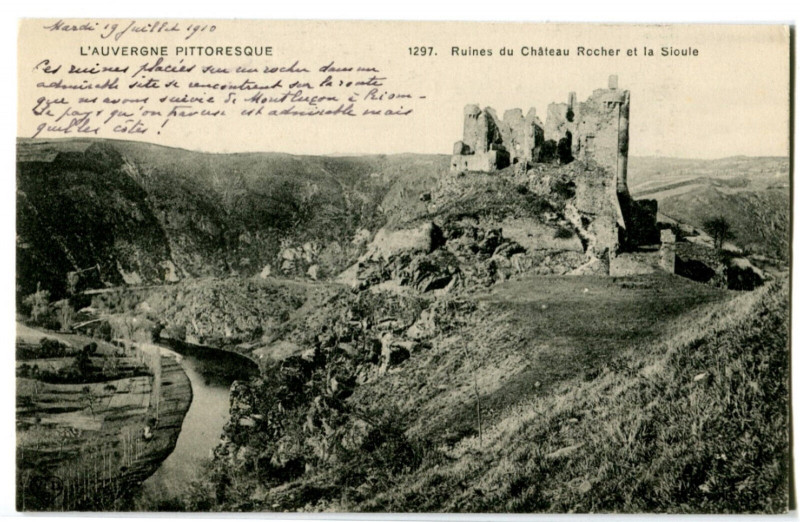 Mardi 19 Juillet 1910
L'AUVERGNE PITTORESQUE
1297. Ruines du Château Rocher et la Sioule
Ces ruines placées sur un rocher dans un
admirable site se rencontrent sur la route
que nous avons suivie de Montluçon à Riom -
Le pays qu'on traverse est admirable mais
quelles côtes !